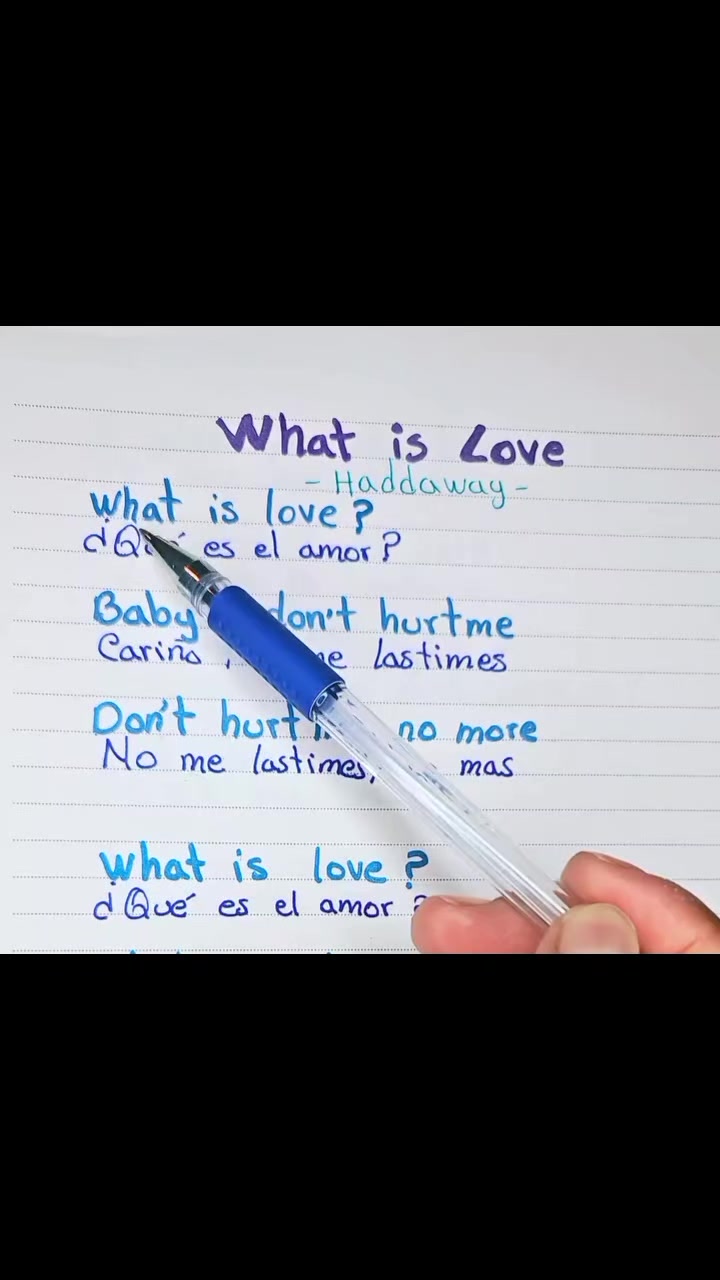 What is Love
- Haddaway -
What is love?
¿Qué es el amor?
Baby don't hurt me
Cariño, me lastimes
Don't hurt no more
No me lastimes, mas
What is love?
¿Qué es el amor ?